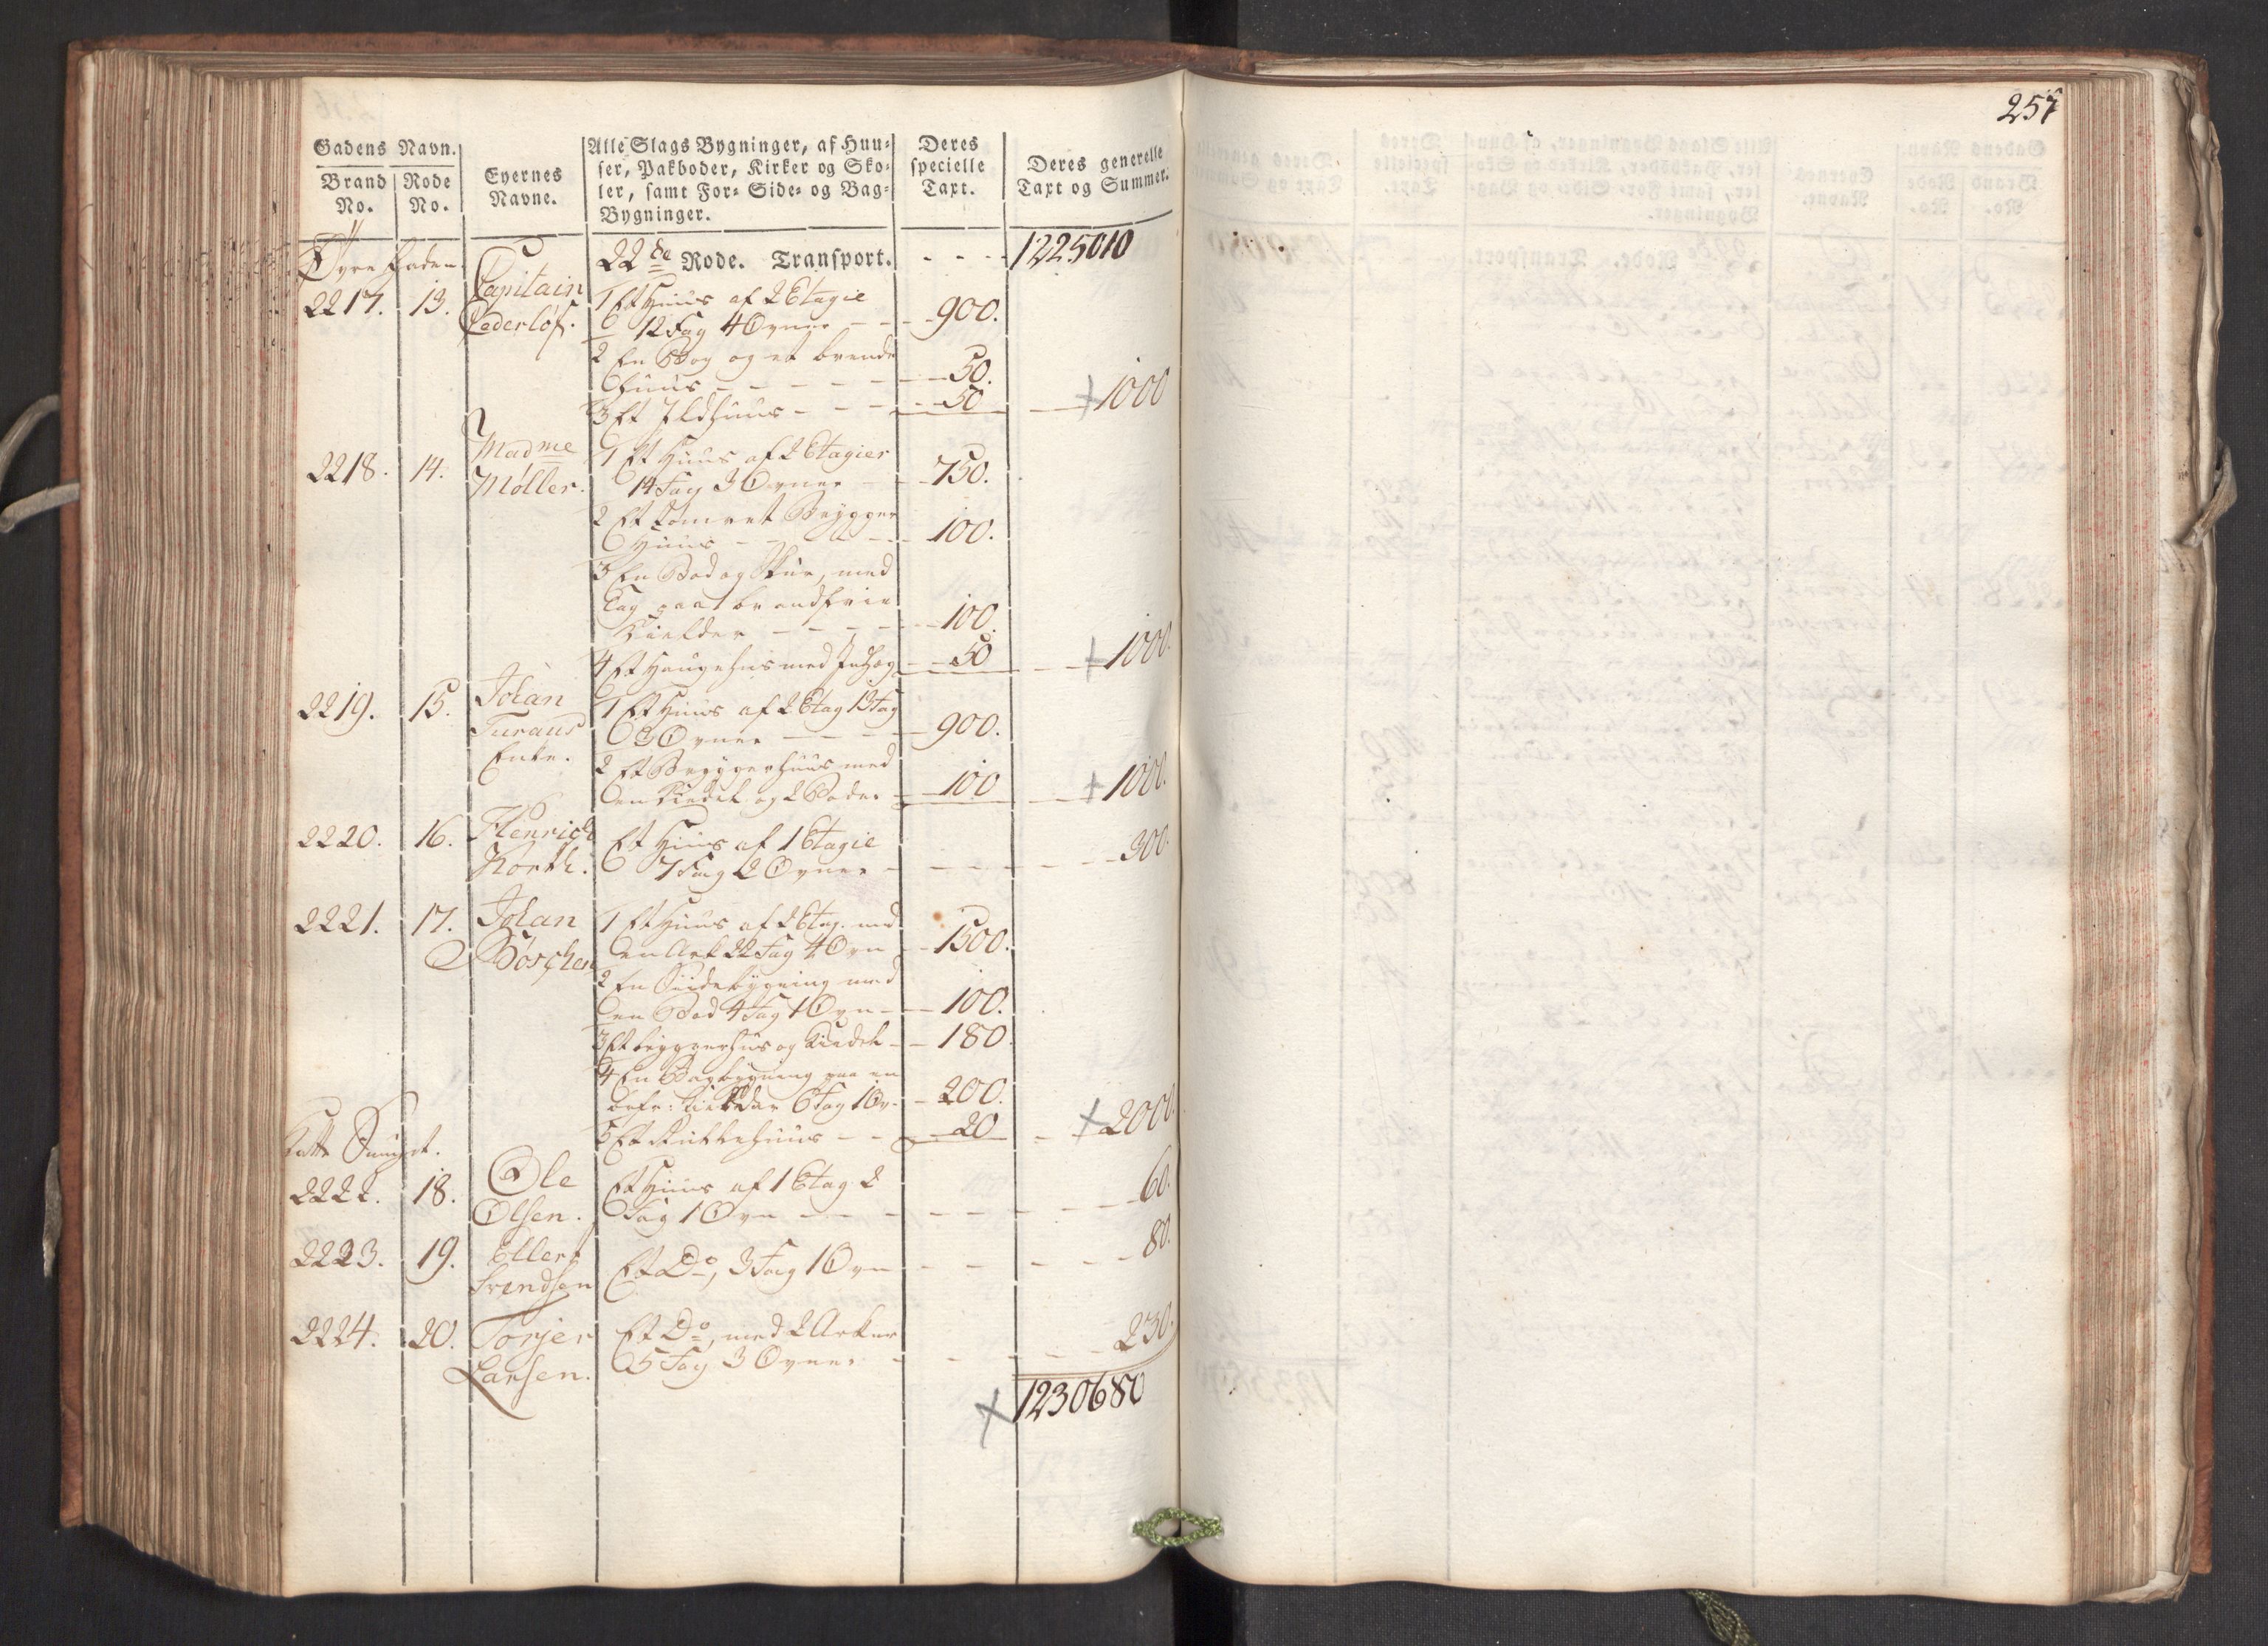 257
Gadens Navn.
Brand No.
Rode No.
Eyernes Navne.
Alle Slags Bygninger, af Huu-
ser, Pakboder, Kirker og Sko-
ler, samt For- Side- og Bag-
Bygninger.
Deres specielle Taxt.
Deres generelle Taxt og Summer.
Øvre Gaden 22de Rode. Transport. - - - 1225010
2217. 13. Capitain 1 Et Huus af 2 Etagie
Cederløf. 12 Fag 4 Ovner - - 900.
2 En Bog og et brende
huus - - - - - 50.
3 Et Ildhuus - - - 50 - 1000
2218. 14. Madme 1 Et Huus af 2 Etagier
Møller. 14 Fag 3 Ovner - - 750.
2 Et tømret Brygger
Huus - - - - 100.
3 En Bod og Skur, med
Tag paa brandfrie
Kielder - - - - 100.
4 Et Haugehus med - 50 - 1000.
2219. 15. Johan 1 Et Huus af 2 Etag 13 Fag
3 Ovner - - - - 900.
Enke. 2 Et Bryggerhuus med
en Kiedel og 2 Boder - 100 - 1000.
2220. 16. Henrich Et Huus af 1 Etagie
North. 7 Fag 2 Ovner - - - - 300.
2221. 17. Johan 1 Et Huus af 2 Etag. med
Børschen en Ark 22 Fag 4 Ovn - 1500.
2 En Sidebygning med
en Bod 4 Fag 1 Ovn - 100.
3 Et bryggerhus og Kiedel - 180
4 En Bagbygning paa en
Kielder 6 Fag 1 Ov. - 200.
5 Et Rullehuus - - 20 - 2000.
2222. 18. Ole Et Huus af 1 Etag 2
Olsen. Fag 1 Ovn - - - - - 60.
2223. 19. Ellert Et Do, 3 Fag 1 Ovn - - - - 80.
Svendsen
2224. 20. Torjer Et Do, med 2 Arker
Larsen. 5 Fag 3 Ovner - - - - 230.
1230680